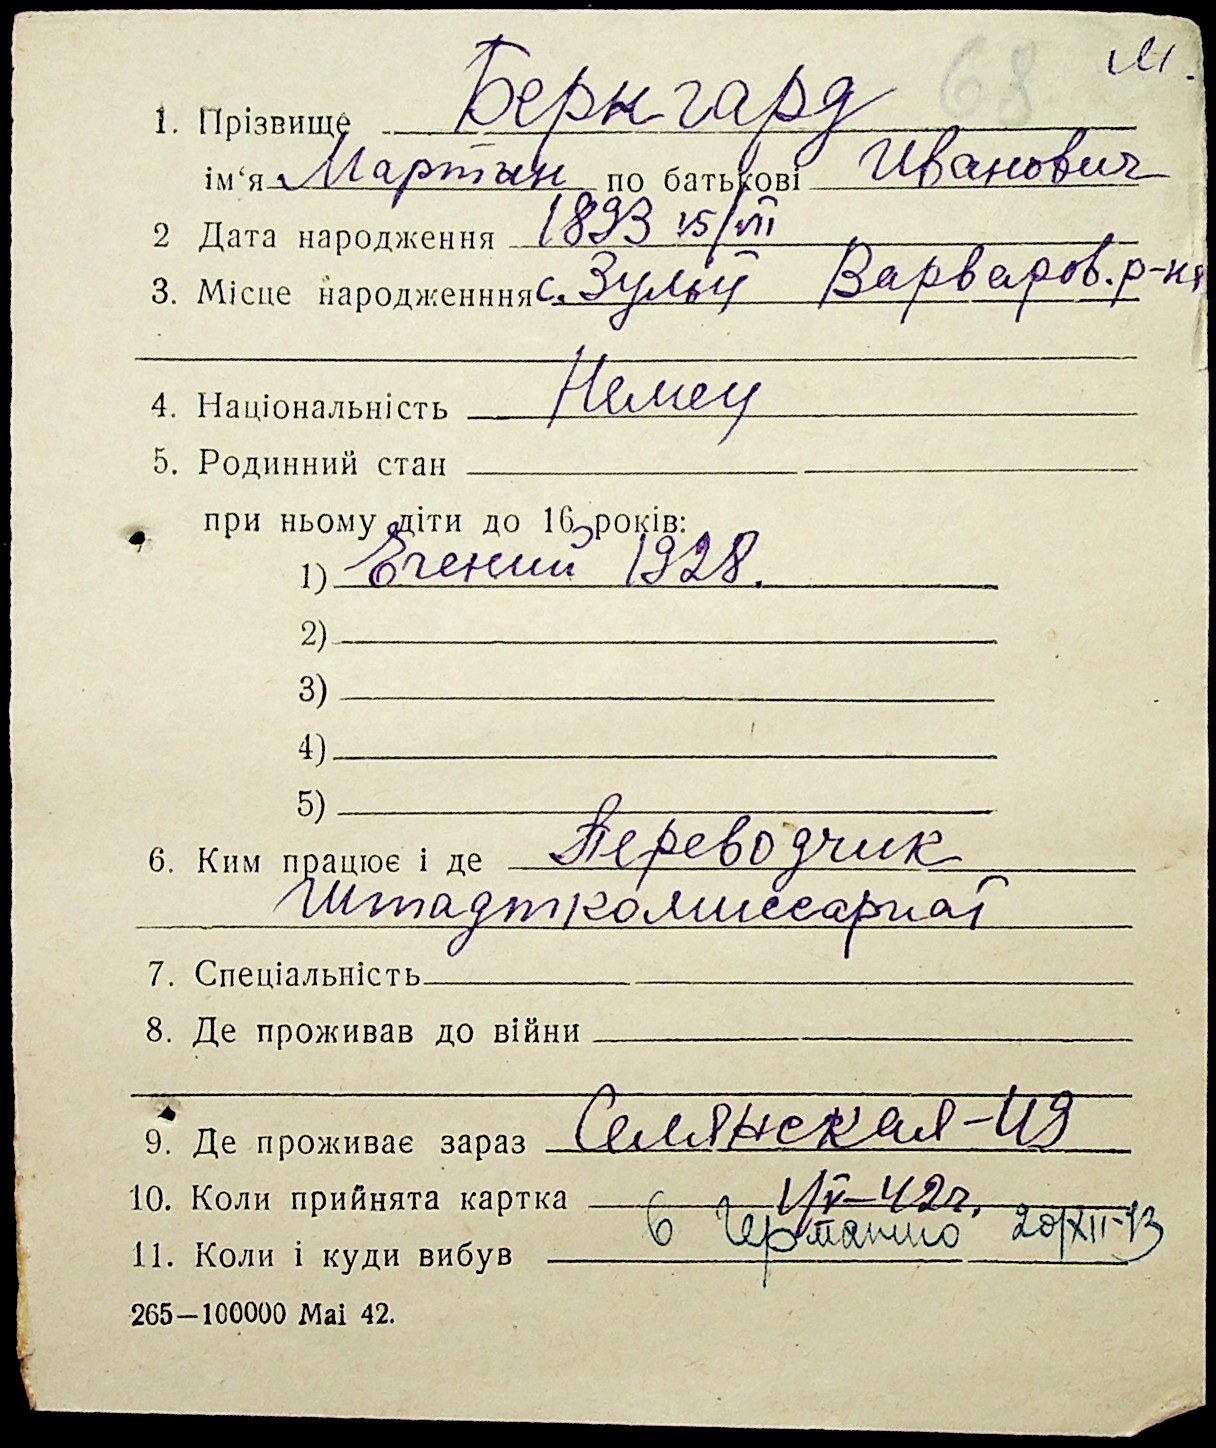 68 М.
1. Прізвище Бернгард
ім'я Мартын по батькові Иванович
2 Дата народження 1893 15/VII
3. Місце народженння с. Зульц Варваров. р-на
4. Національність Немец
5. Родинний стан
при ньому діти до 16 років:
1) Егений 1928.
2)
3)
4)
5)
6. Ким працює і де Переводчик
Штадткомиссариат
7. Спеціальність
8. Де проживав до війни
9. Де проживає зараз Селянская-49
10. Коли прийнята картка 1/V-42г.
11. Коли і куди вибув в Германию 20/XII-43
265—100000 Mai 42.